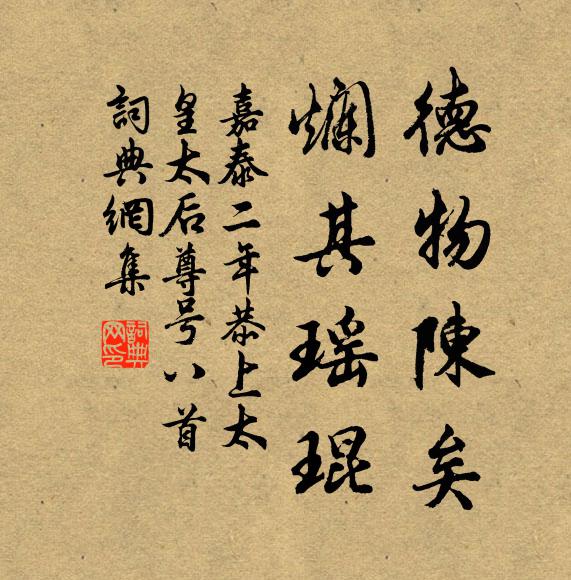 德物陳矣
爛其瑤琨
嘉泰二年恭上太
皇太后尊号八首
詞典網集
詞典网印